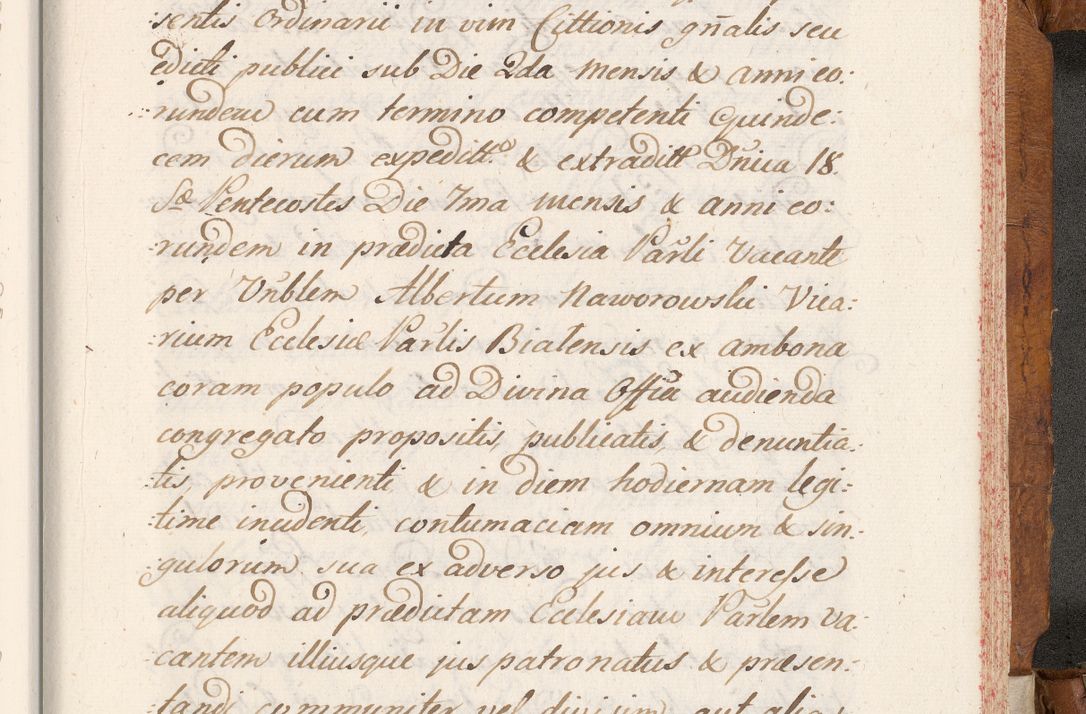 sentis Ordinarii in vim Cittionis gñalis seu
edicti publici sub Die 2da mensis & anni eo:
:rundem cum termino competenti Quinde:
cem dierum expeditt° & extraditt° Dñica 18.
Sa Pentecostes Die 7ma mensis & anni eo:
:rundem in prædicta Ecclesia Parli Vacante
per Vnblem Albertum Naworowski Vica:
:rium Ecclesiæ Parlis Bialensis ex ambona
coram populo ad Divina Offia audienda
congregato propositis, publicatis, & denuntia:
:tis, provenienti & in diem hodiernam legi:
:time incidenti, contumaciam omnium & sin:
:gulorum sua ex adverso jus & interesse
aliquod ad prædictam Ecclesiam Parlem va:
:cantem illiusque jus patronatus & præsen:
:tandi communiter vel divisim aut alias